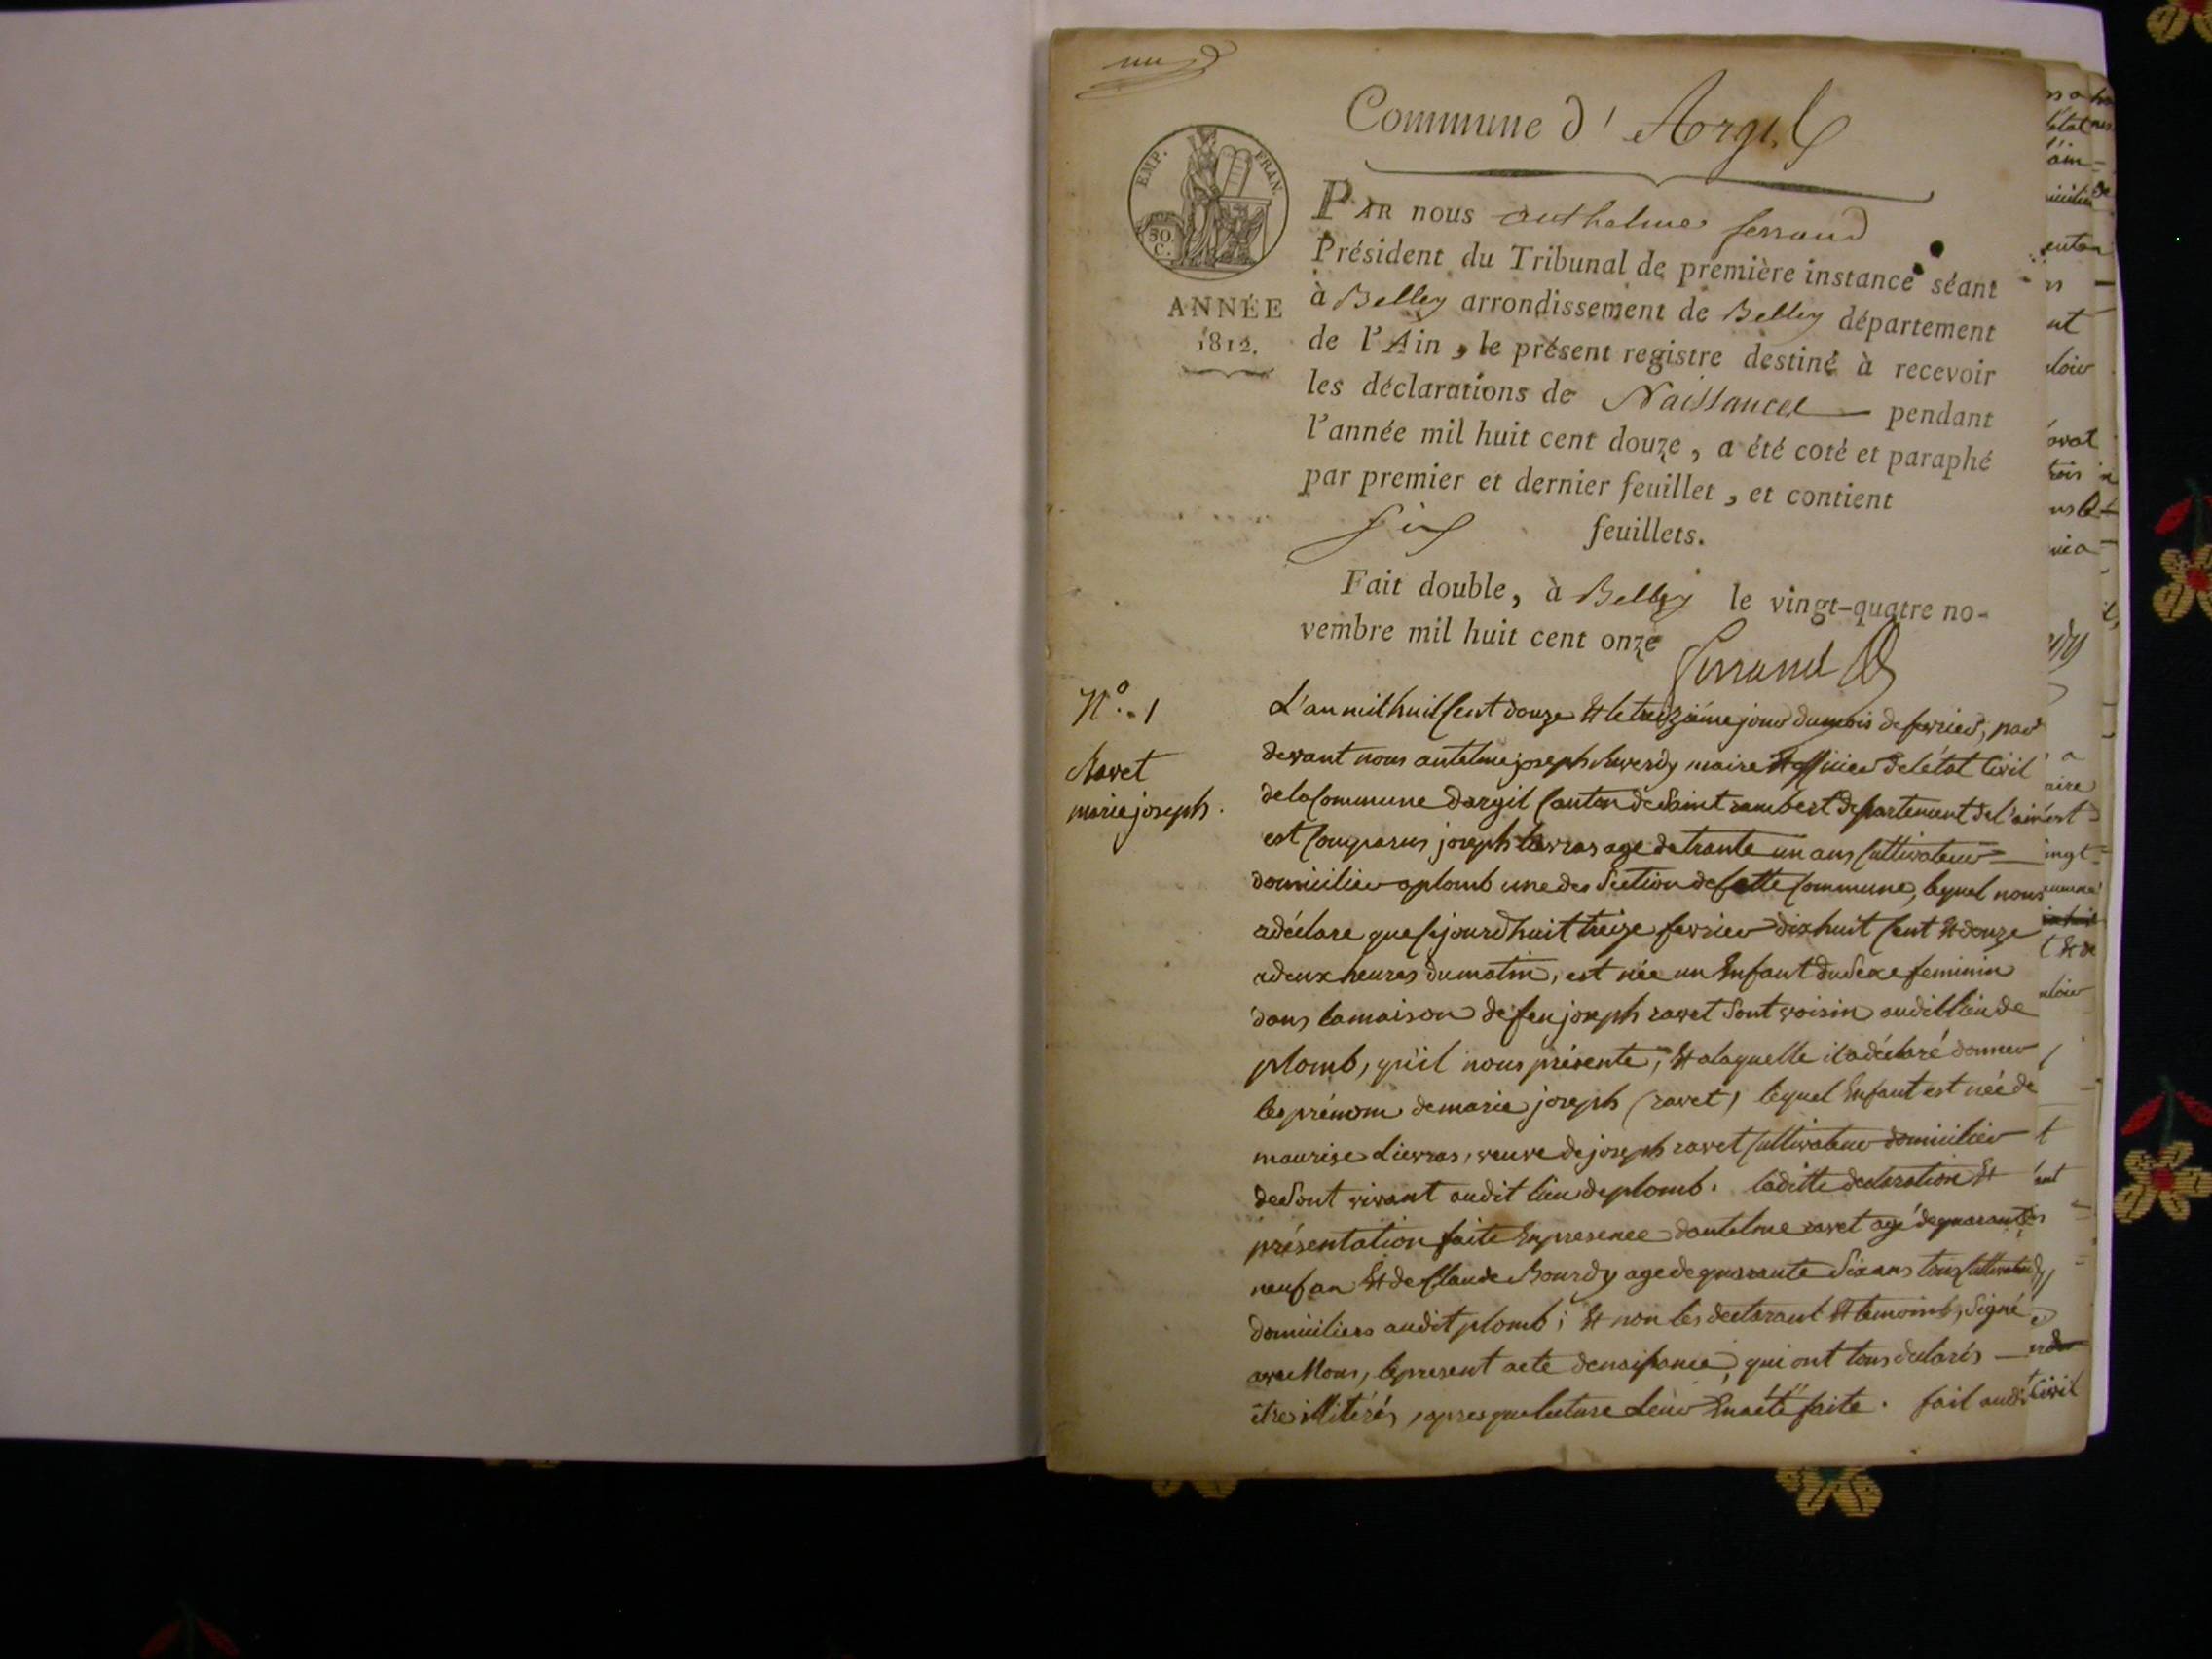 Commune d'Argil
EMP. FRAN.
30.
C.
ANNÉE
1812.
PAR nous anthelme ferrand
Président du Tribunal de première instance séant
à Belley arrondissement de Belley département
de l'Ain, le présent registre destiné à recevoir
les déclarations de Naissances pendant
l'année mil huit cent douze, a été coté et paraphé
par premier et dernier feuillet, et contient
six feuillets.
Fait double, à Belley le vingt-quatre no-
vembre mil huit cent onze
Ferrand
N°. 1
Ravet
marie joseph.
L'an mil huit cent douze et le treizième jour du mois de fevrier, par
devant nous antelme joseph maire et officier de létat Civil
de la Commune dargil Canton de Saint rambert departement de l'ain
est Comparus joseph age de trante un ans Cultivateur
domicilier a plomb une des Section de Cette Commune, lequel nous
a déclare que Cejourdhuit treize fevrier dix huit Cent et douze
a deux heures du matin, est née un Enfant du Sexe feminin
dans la maison de feu joseph ravet Sont voisin audit lieu de
plomb, qu'il nous présente, et a laquelle il a déclaré donner
les prénom de marie joseph (ravet) lequel Enfant est née de
maurise Lievras, veuve de joseph ravet Cultivateur domicilier
de Sont vivant audit lieu de plomb. laditte declaration et
présentation faite En presence dantelme ravet agé de quarante
neuf an et de Claude Bourdy age de quarante Six ans tous Cultivateurs
domiciliers audit plomb; et non les declarant et temoins, Signé
avec Nous, le present acte de naissance, qui ont tous declarés
être illitérés, apres que lecture Leur En a été faite. fait audit